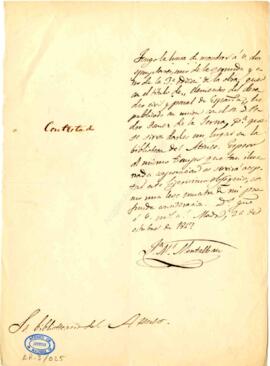 Tengo la honra de mandar á V. dos
ejemplares, uno de la segunda y
otro de la 3ª edicion de la obra, que
con el título de, Elementos del dere-
cho civil y penal de España, he
publicado en union con el Sr. D. Pe-
dro Gomez de la Serna, pª que
se sirva darle un lugar en la
biblioteca del Ateneo. Espero
al mismo tiempo que tan ilus-
trada corporacion se servirá acep-
tar este pequeño obsequio, co-
mo una leve muestra de mi pro-
funda consideracion. Dios gue
á V. m. a. Madrid, 26 de
octubre de 1852
Contestado
Jn. Ml. Montalban
Sr. bibliotecario del Ateneo.